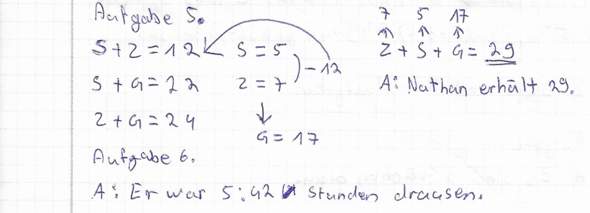 Aufgabe 5.
S+Z=12
S=5
Z=7
-12
S+G=22
Z+G=24
G=17
7 5 17
Z+S+G=29
A: Nathan erhält 29.
Aufgabe 6.
A: Er war 5:42 Stunden drausen.